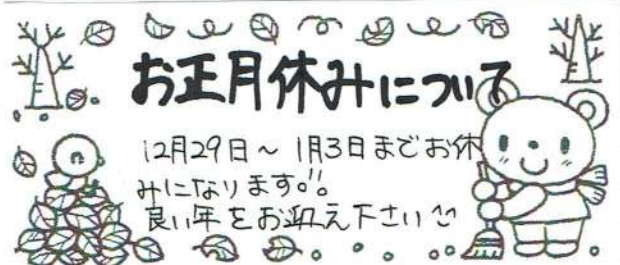 お正月休みについて
12月29日～1月3日までお休
みになります。
良い年をお迎え下さい